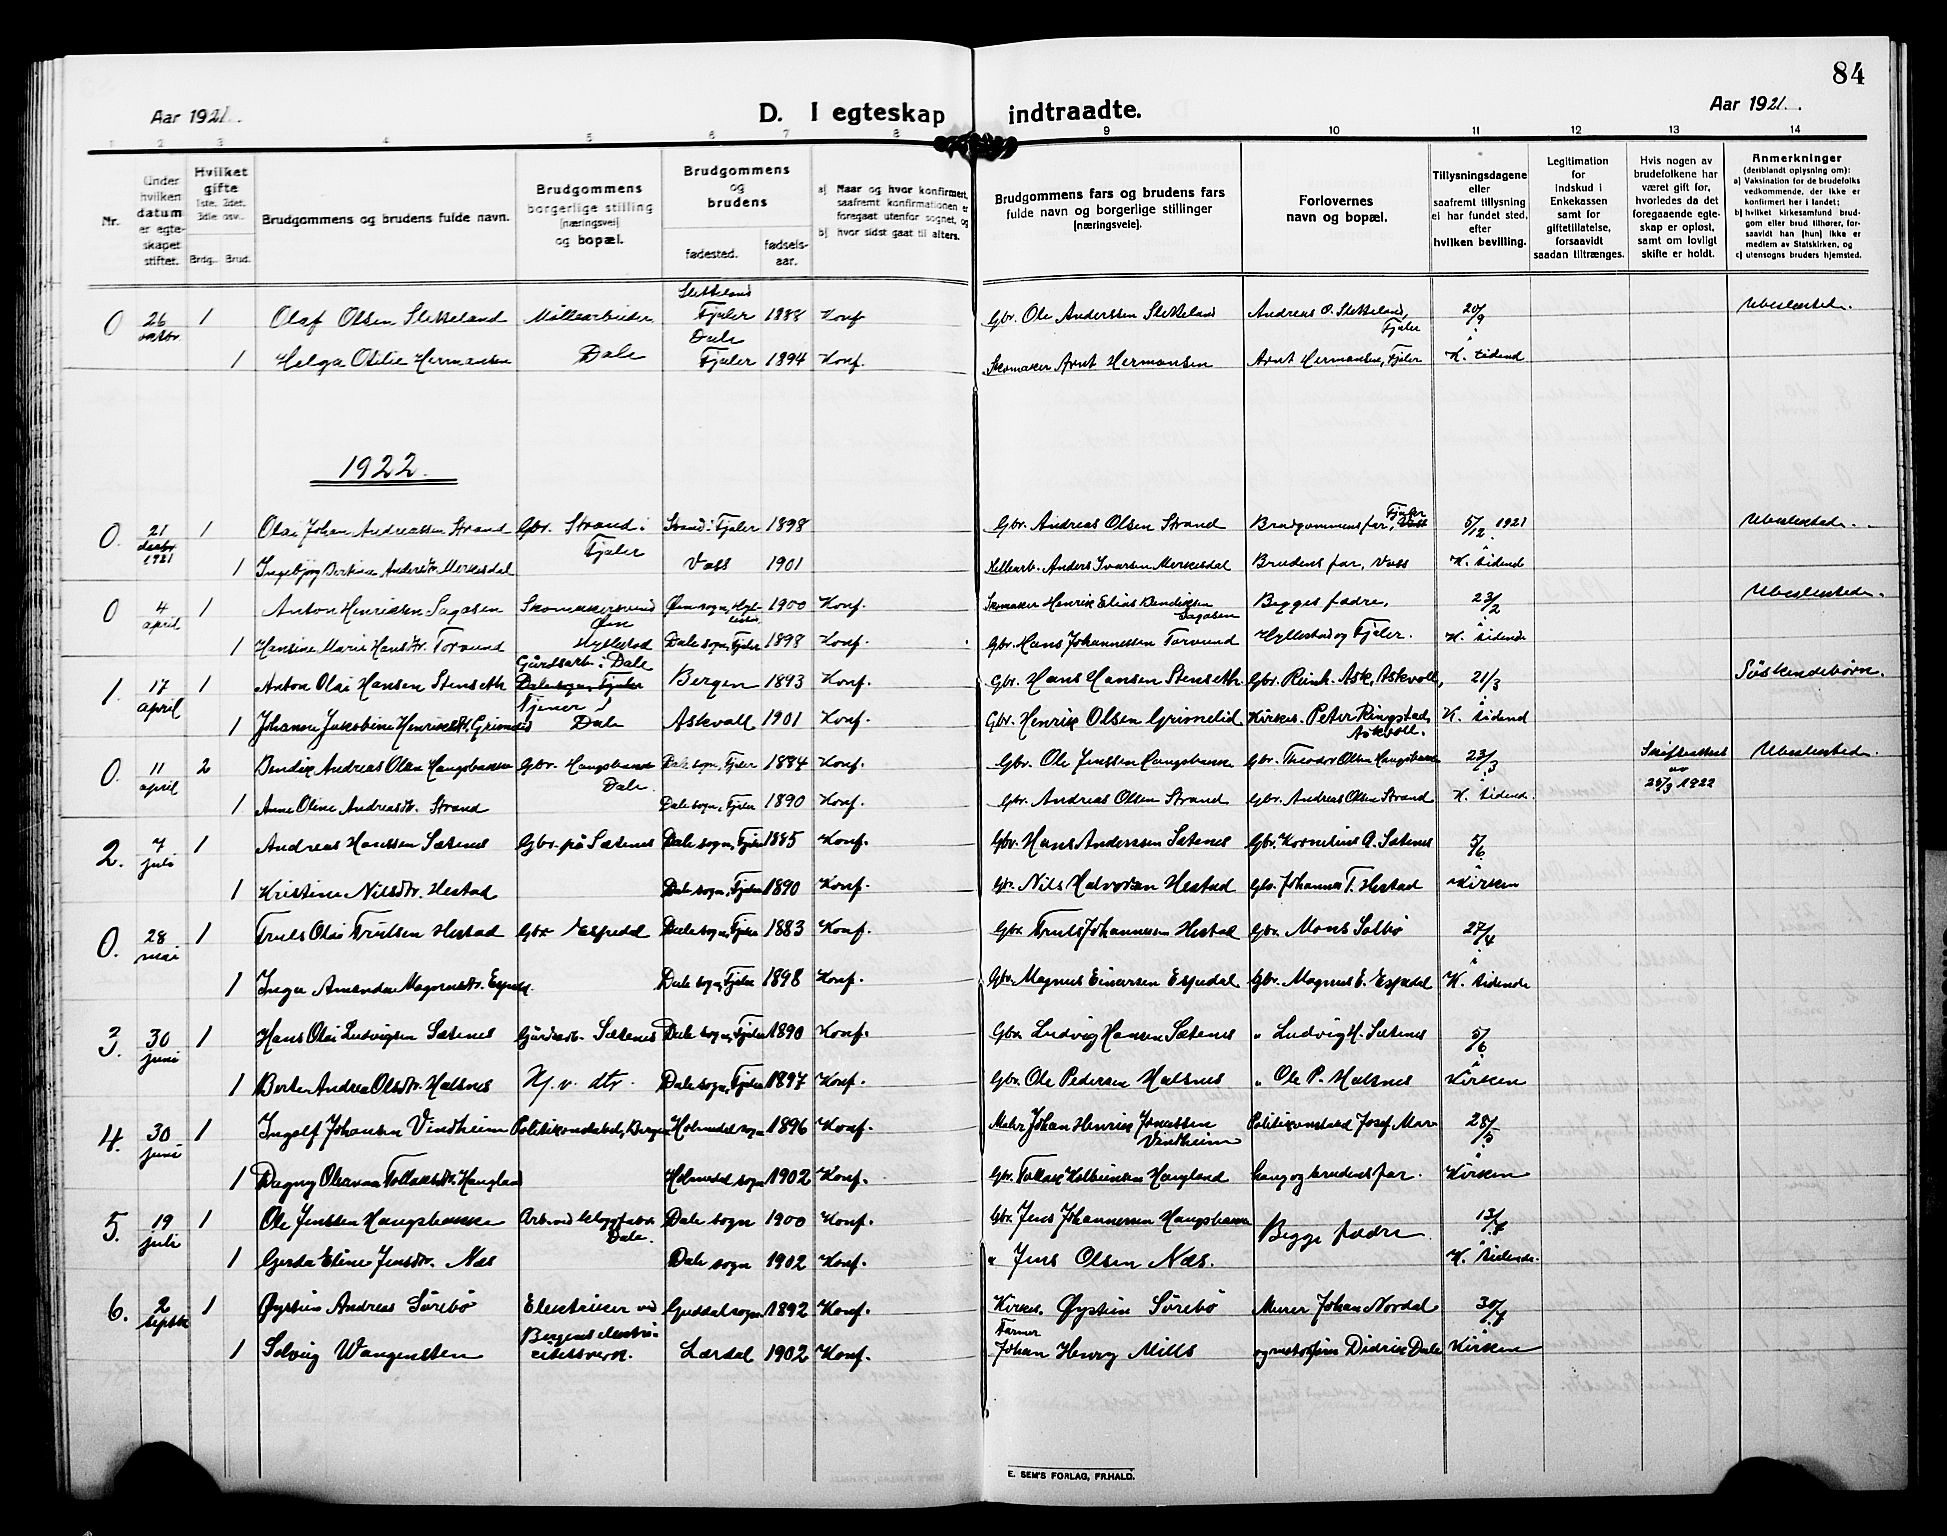 84
Aar 1921.
D. I egteskap indtraadte.
Aar 1921.
1 2 3 4 5 6 7 8 9 10 11 12 13 14
Nr.
Under hvilken datum er egteskapet stiftet.
Hvilket gifte 1ste, 2det, 3die osv.
Brdg. Brud.
Brudgommens og brudens fulde navn.
Brudgommens borgerlige stilling (næringsvei) og bopæl.
Brudgommens og brudens
fødested.
fødselsaar.
a) Naar og hvor konfirmert, saafremt konfirmationen er foregaat utenfor sognet, og
b) hvor sidst gaat til alters.
Brudgommens fars og brudens fars fulde navn og borgerlige stillinger (næringsveie).
Forlovernes navn og bopæl.
Tillysningsdagene eller saafremt tillysning ei har fundet sted, efter hvilken bevilling.
Legitimation for indskud i Enkekassen samt for giftetillatelse, forsaavidt saadan tiltrænges.
Hvis nogen av brudefolkene har været gift før, hvorledes da det foregaaende egteskap er opløst, samt om lovligt skifte er holdt.
Anmerkninger (deriblandt oplysning om):
a) Vaksination for de brudefolks vedkommende, der ikke er konfirmert her i landet;
b) hvilket kirkesamfund brudgom eller brud tilhører, forsaavidt han (hun) ikke er medlem av Statskirken, og
c) utensogns bruders hjemsted.
0 26 oktbr 1 Olaf Olsen Sletteland Møllearbeider Sletteland Fjaler 1888 Konf Gbr. Ole Anderssen Sletteland Andreas O. Sletteland, Fjaler 20/9 i Ubeslektet.
1 Helga Otilie Hermansen Dale Dale Fjaler 1894 Konf. Skomaker Arnt Hermansen Arnt Hermansen, Fjaler K. tidend
1922.
0. 21 desbr 1921 1 Olai Johan Andreassen Strand Gbr. Strand i Fjaler Strand i Fjaler 1898 Gbr. Andreas Olsen Strand Brudgommens far, Fjaler 5/12 1921 i Ubeslektede.
1 Ingebjørg Bertine Andersdtr. Merkesdal Voss 1901 Anders Ivarsen Merkesdal Brudens far, Voss K. tidend
0 4 april 1 Anton Henriksen Sagøsen Skomakersvend Øen Hyllestad Øen sogn, 1900 Konf. Skomaker Henrik Elias Bendiksen Sagøsen Begges fædre, 23/2 i Ubeslektede.
1 Hansine Marie Hansdtr. Torvund Dale sogn, Fjaler 1898 Konf. Gbr. Hans Johannessen Torvund Hyllestad og Fjaler. K. tidende
1. 17 april 1 Anton Olai Hansen Stenseth Gårdsarb. i Dale Dale sogn, Fjaler Bergen 1893 Konf. Gbr. Hans Hansen Stenseth Gbr. Reinh. Ask, Askvoll, 21/3 i Søskendebørn.
1 Johanne Jakobine Henriksdtr. Grimelid Tjener i Dale Askvoll 1901 Konf. Gbr. Henrik Olsen Grimelid Kirkes. Peter Ringstad, Askvoll. K. tidend
0. 11 april 2 Bendik Andreas Olsen Haugsbakke Gbr. Haugsbakke Dale. Dale sogn, Fjaler 1884 Konf. Gbr. Ole Jenssen Haugsbakke Gbr. Theodor Olsen Haugsbakke 23/3 i Skifteattest av 25/3 1922 Ubeslektede.
1 Anne Oline Andreasdtr. Strand Dale sogn, Fjaler 1890 Konf. Gbr. Andreas Olsen Strand Gbr. Andreas Olsen Strand K. tidende.
2. 7 juli 1 Andreas Hanssen Sætenes Gbr. på Sætenes Dale sogn, Fjaler 1885 Konf. Gbr. Hans Anderssen Sætenes Gbr. Kornelius A. Sætenes 5/6 i
1 Kristine Nilsdtr. Hestad Dale sogn, Fjaler 1890 Konf. Gbr. Nils Halvorsen Hestad Gbr. Johannes T. Hestad Kirken
0. 28 mai 1 Truls Olai Trulsen Hestad Gbr. Espedal Dale sogn, Fjaler 1883 Konf. Gbr. Truls Johannessen Hestad Gbr. Mons Solbø 27/4 i
1 Inga Amanda Magnusdtr. Espedal Dale sogn, Fjaler 1898 Konf. Gbr. Magnus Einarsen Espedal Gbr. Magnus E. Espedal K. tidende
3. 30 juni 1 Hans Olai Ludvigsen Sætenes Gårdsarb. Sætenes Dale sogn, Fjaler 1890 Konf. Gbr. Ludvig Hansen Sætenes " Ludvig H. Sætenes 5/6 i
1 Berte Andrea Olsdtr. Halsnes Hj. v. dtr. Dale sogn, Fjaler 1897 Konf. Gbr. Ole Pedersen Halsnes " Ole P. Halsnes Kirken
4. 30 juni 1 Ingolf Johansen Vindheim Politikonstabel, Bergen Holmedal sogn 1896 Konf. Maler Johan Henrik Jonassen Vindheim Politikonstabel Josef 28/5 i
1 Dagny Olsanna Tollaksdtr. Haugland Holmedal sogn 1902 Konf. Gbr. Tollak Kolbeinsen Haugland haug og brudens far. Kirken
5. 19 juli 1 Ole Jenssen Haugsbakke Dale. Dale sogn 1900 Konf. Gbr. Jens Johannessen Haugsbakke Begge fædre 13/7 i
1 Gerda Eline Jensdtr. Næs Dale sogn 1902 Konf. " Jens Olsen Næs. K. tidende.
6. 2 septbr 1 Øystein Andreas Sørebø Elektriker ved Bergens elektricitetsverk. Guddal sogn 1892 Konf. Kirkes. Øystein Sørebø Murer Johan Nordal 30/7 i
1 Solveig Wangensteen Lærdal 1902 Konf. Farmer Johan Henry Mills Didrik Dale Kirken
E. SEM'S FORLAG, FR.HALD.